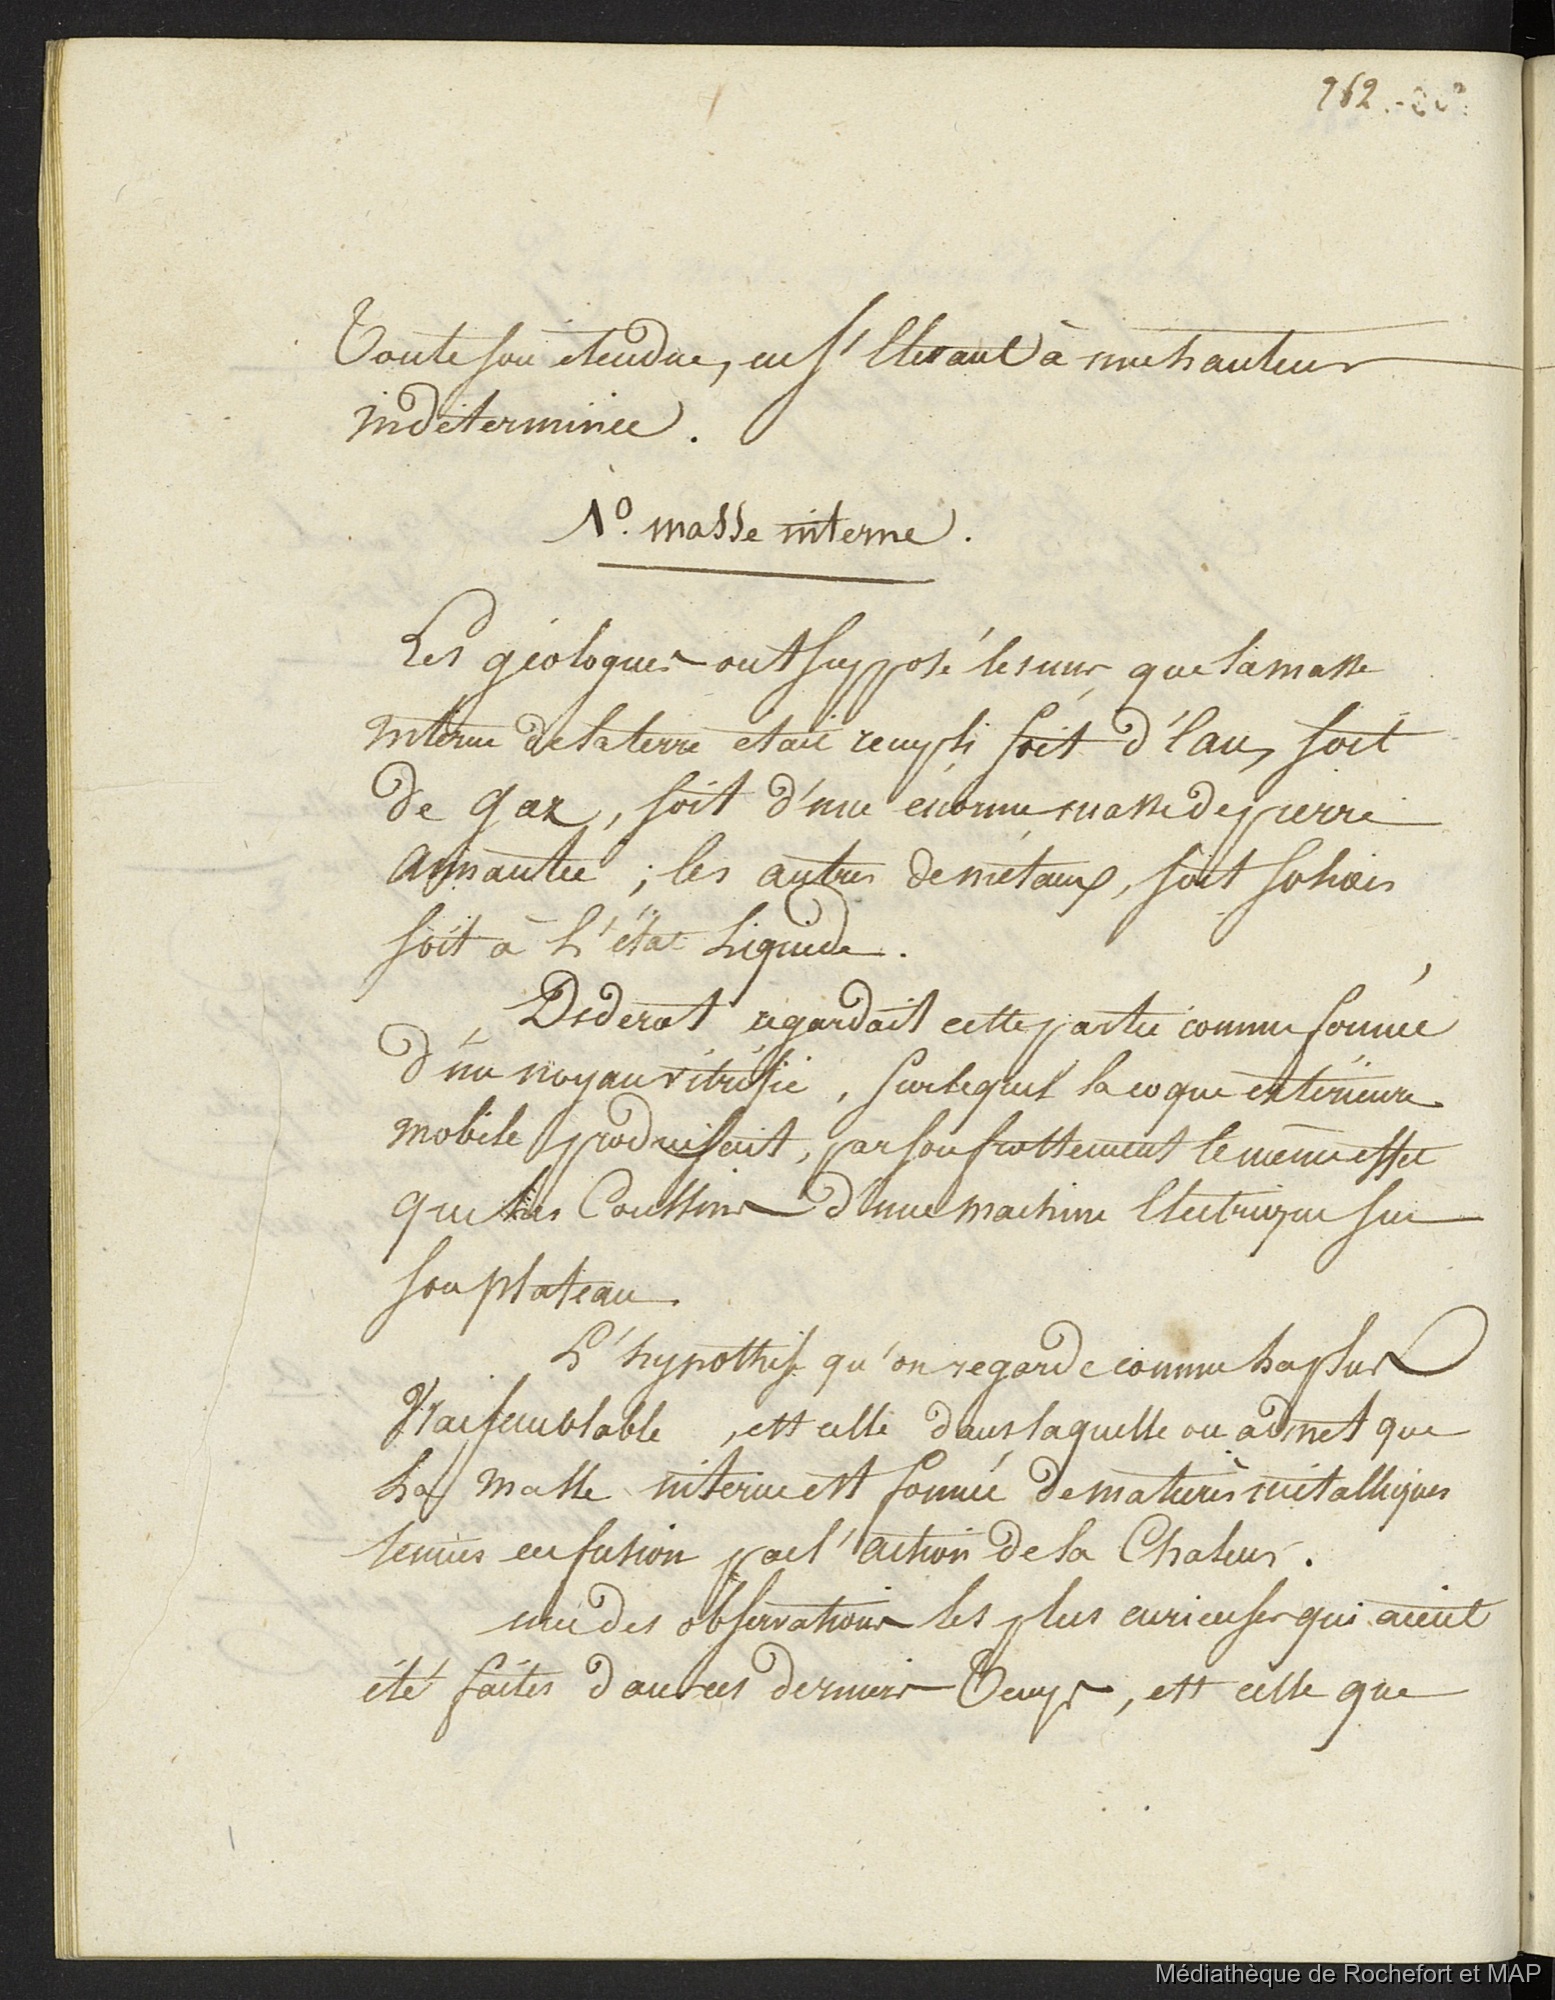 262.
Toute son étendue, en s'élevant à une hauteur
indéterminée.
1º. masse interne.
Les géologues ont supposé les uns que la masse
interne de la terre était rempli soit d'eau, soit
de gaz, soit d'une énorme masse de pierre
aimantée ; les autres de métaux, soit solides
soit à l'état liquide.
Diderot regardait cette partie comme formée
d'un noyau vitrifié, sur lequel la coque extérieure
mobile produisait, par son frottement le même effet
que les Coussins d'une machine électrique sur
son plateau.
L'hypothèse qu'on regarde comme la plus
Vraisemblable, est celle dans laquelle on admet que
La masse interne est formée de matières métalliques
tenues en fusion par l'action de la Chaleur.
une des observations les plus curieuses qui aient
été faites dans ces derniers Temps, est celle que
Médiathèque de Rochefort et MAP